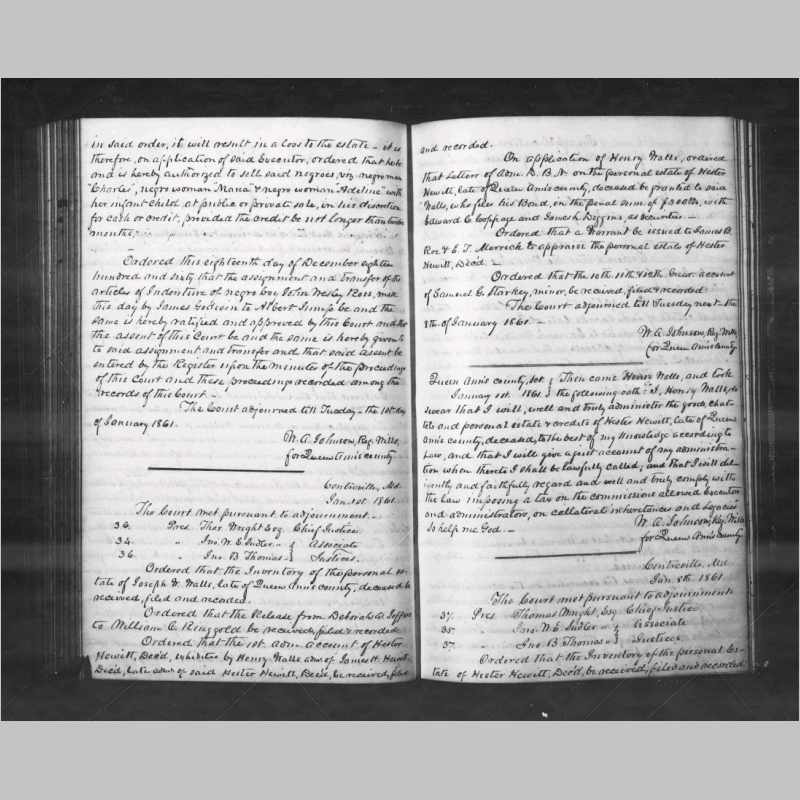 in said order, it will result in a loss to the estate - it is
therefore, on application of said Executor, ordered that he be
and is hereby authorized to sell said negroes, viz negro man
"Charles", negro woman "Maria" & negro woman "Adeline" with
her infant child, at public or private sale, in his discretion
for cash or credit, provided the credit be not longer than
months,
Ordered this eighteenth day of December eighteen
hundred and sixty that the assignment and transfer of the
articles of Indenture of negro boy John Wesley Ross, made
this day by James to Albert be and the
same is hereby ratified and approved by this Court and that
the assent of this Court be and the same is hereby given to
to said assignment and transfer and that said assent be
entered by the Register upon the minutes of the proceedings
of this Court and these proceedings recorded among the
records of this Court -
The Court adjourned till Tuesday - the 1st day
of January 1861.
W. A. Johnson, Reg. Wills,
for Queen Ann's county
Centreville, Md.
Jan. 1st. 1861.
The Court met pursuant to adjournment. -
36. Pres. Thos. Wright Esq. Chief Justice.
34. " Jno. W. E. Sudler " } Associate
36. " Jno. B. Thomas " } Justices.
Ordered that the Inventory of the personal es-
tate of Joseph W. Walls, late of Queen Ann's county, deceased be
received, filed and recorded.
Ordered that the Release from Deborah A.
to William C. Ringgold be received, filed & recorded
Ordered that the 1st. adm. account of Hester
Hewitt, Dec'd, exhibited by Henry Walls adm. of James H.
Dec'd, late adm. of said Hester Hewitt, Dec'd, be received, filed
and recorded.
On application of Henry Walls, ordered
that Letters of adm. D. B. N. on the personal estate of Hester
Hewitt, late of Queen Ann's county, deceased be granted to said
Walls, who files his Bond, in the penal sum of with
Edward C. Coppage and James h. Diggins, as securities. -
Ordered that a Warrant be issued to James B.
Roe & E. T. Merrick to appraise the personal estate of Hester
Hewitt, Dec'd. -
Ordered that the 10th 11th & 12th Guar. account
of Samuel C. Starkey, minor, be received, filed & recorded
The Court adjourned till Tuesday next the
8th. of January 1861. -
W. A. Johnson, Reg. Wills,
for Queen Ann's County
Queen Ann's county, sct. } Then came Henry Walls, and took
January 1st. 1861. } the following oath: "I, Henry Walls, do
swear that I will, well and truly administer the goods, chat-
tels and personal estate & credits of Hester Hewitt, late of Queen
Ann's county, deceased, to the best of my knowledge according to
Law, and that I will give a just account of my administra-
tion when thereto I shall be lawfully called; and that I will dil-
igently and faithfully regard and well and truly comply with
the law imposing a tax on the commissions allowed Executors
and administrators, on collateral inheritances and Legacies
So help me God. - W. A. Johnson, Reg. Wills
for Queen Ann's County
Centreville, Md.
Jan. 8th. 1861.
The Court met pursuant to adjournment
37. Pres. Thomas Wright, Esq. Chief Justice
35 " Jno. W. E. Sudler " } Associate
37. " Jno B Thomas " } Justices
Ordered that the Inventory of the personal Es-
tate of Hester Hewett, Dec'd, be received, filed and recorded